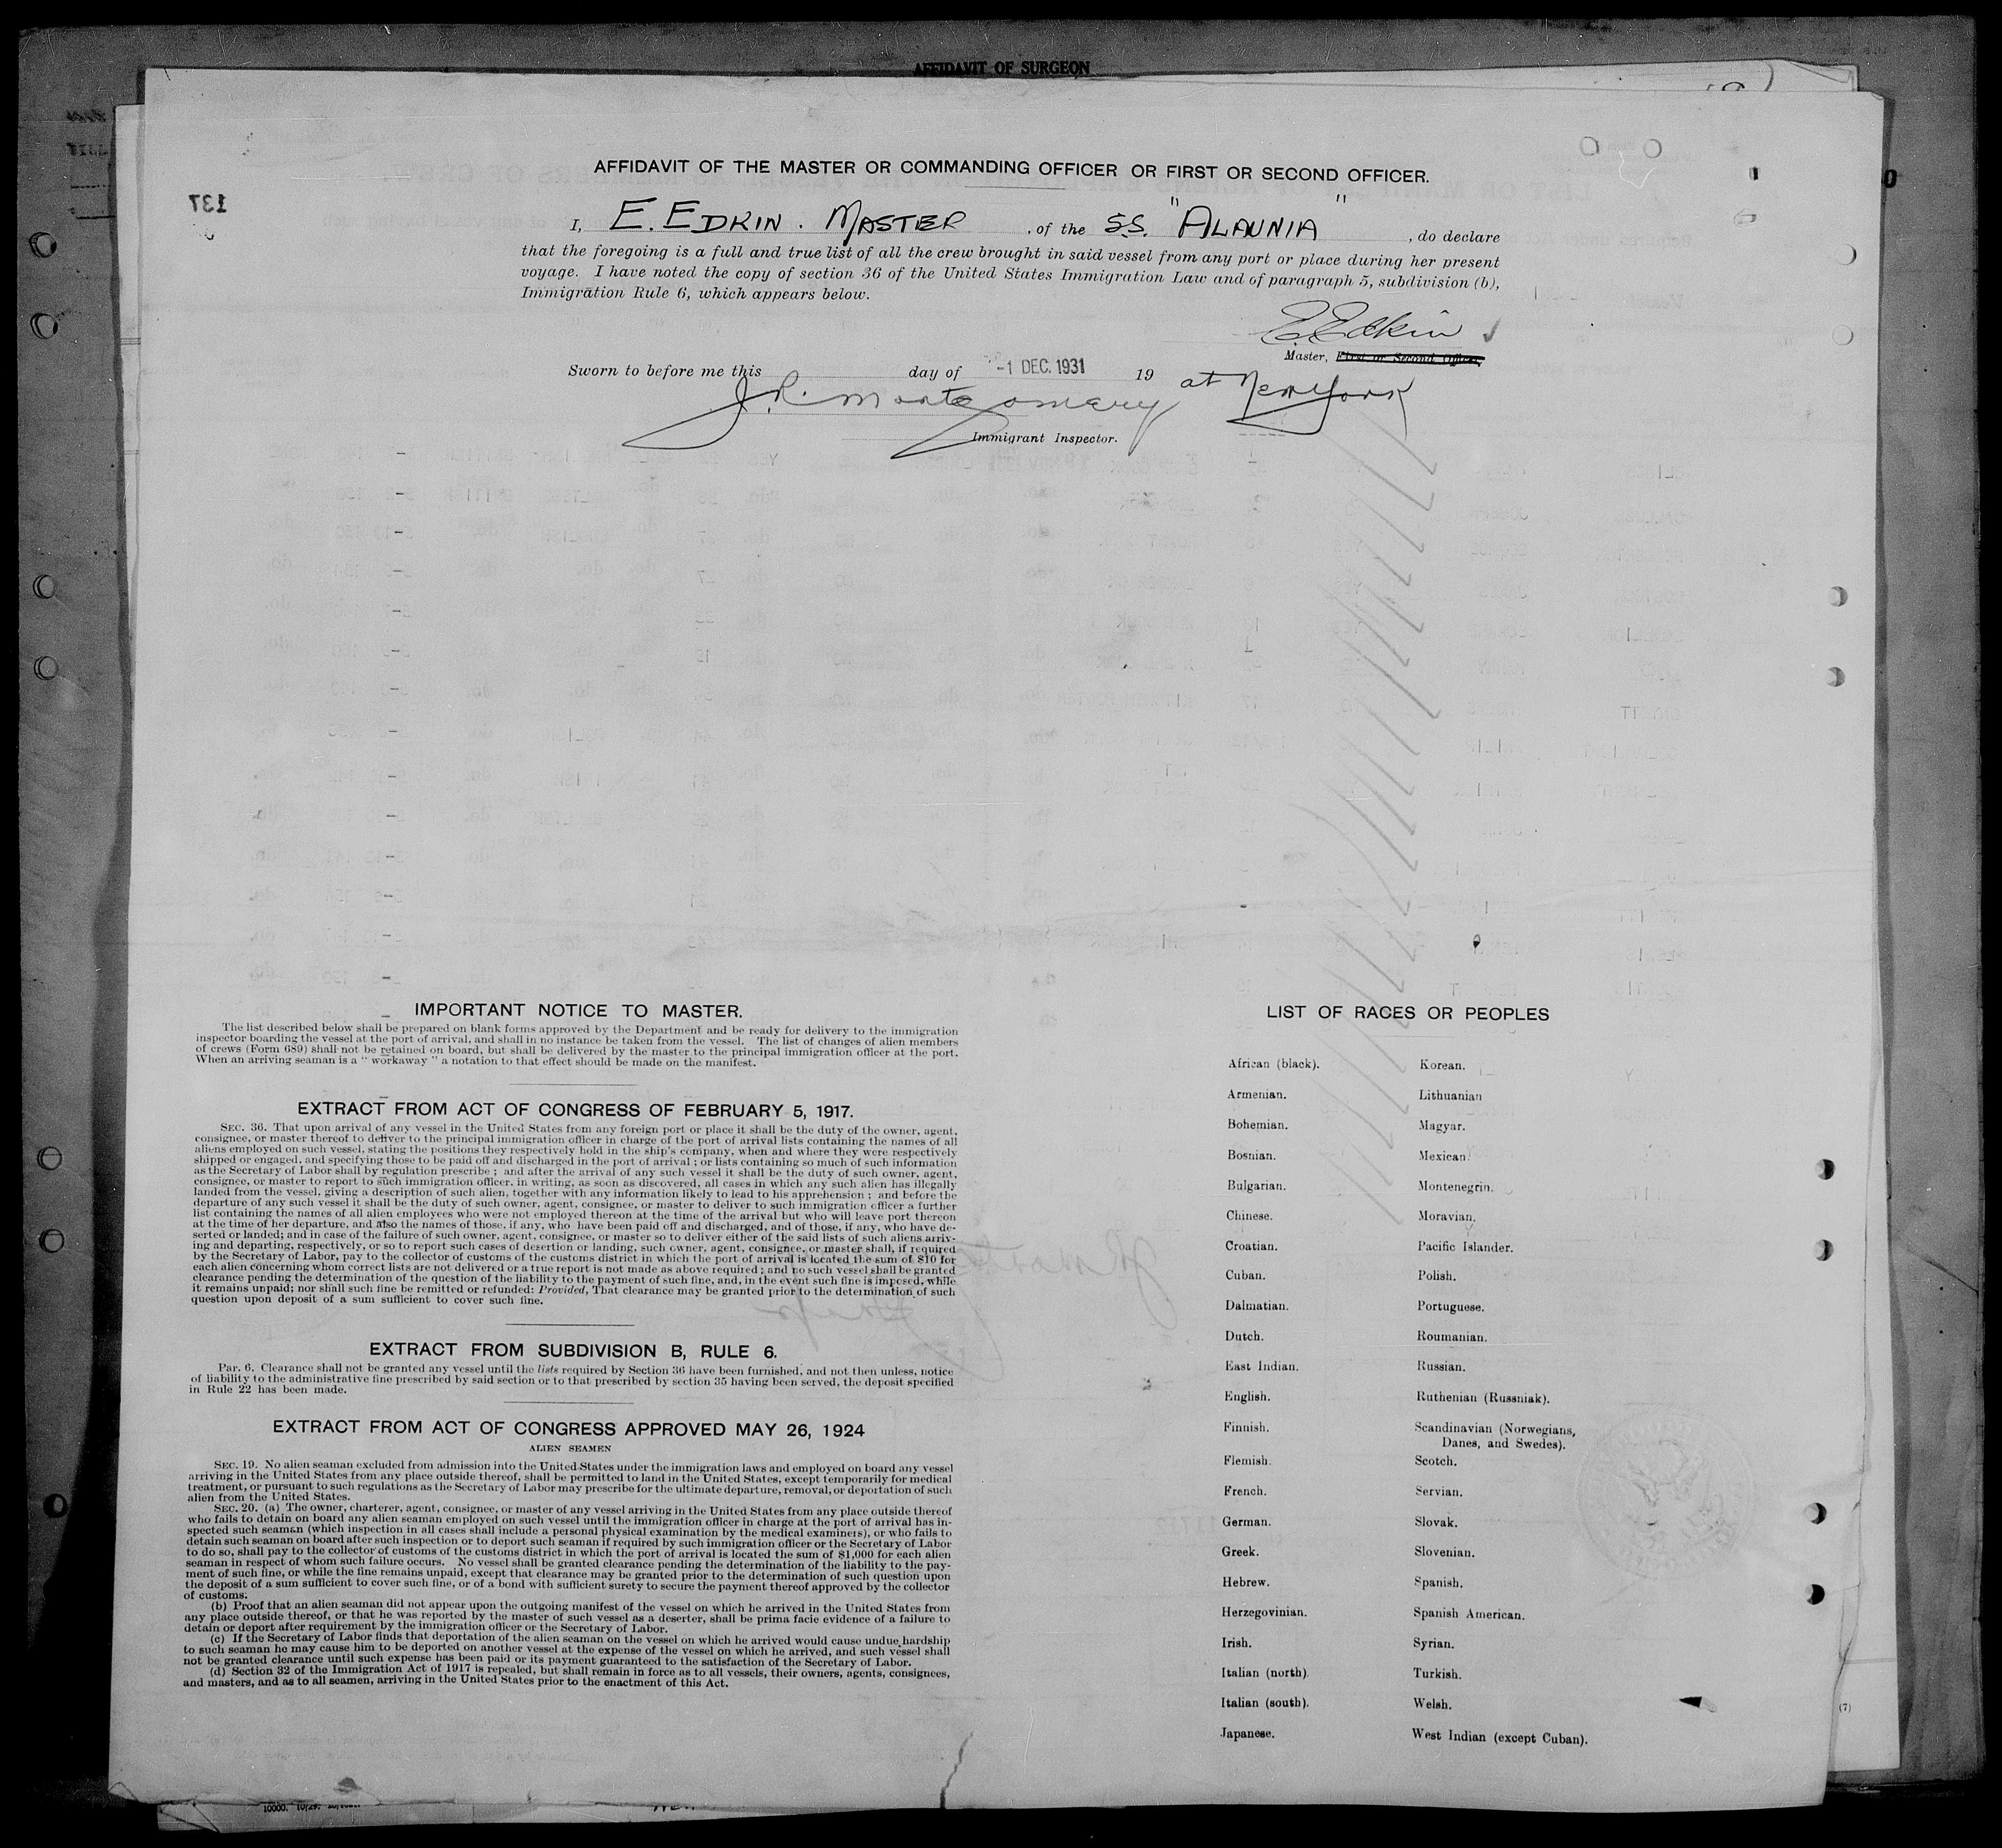 AFFIDAVIT OF SURGEON
AFFIDAVIT OF THE MASTER OR COMMANDING OFFICER OR FIRST OR SECOND OFFICER.
137
I, E. EDKIN. MASTER, of the S.S. "ALAUNIA", do declare
that the foregoing is a full and true list of all the crew brought in said vessel from any port or place during her present
voyage. I have noted the copy of section 36 of the United States Immigration Law and of paragraph 5, subdivision (b),
Immigration Rule 6, which appears below.
E. Edkin
Master, First or Second Officer.
Sworn to before me this day of -1 DEC. 1931 19 at New York
J. R. Montgomery
Immigrant Inspector.
IMPORTANT NOTICE TO MASTER.
The list described below shall be prepared on blank forms approved by the Department and be ready for delivery to the immigration
inspector boarding the vessel at the port of arrival, and shall in no instance be taken from the vessel. The list of changes of alien members
of crews (Form 689) shall not be retained on board, but shall be delivered by the master to the principal immigration officer at the port.
When an arriving seaman is a " workaway " a notation to that effect should be made on the manifest.
EXTRACT FROM ACT OF CONGRESS OF FEBRUARY 5, 1917.
SEC. 36. That upon arrival of any vessel in the United States from any foreign port or place it shall be the duty of the owner, agent,
consignee, or master thereof to deliver to the principal immigration officer in charge of the port of arrival lists containing the names of all
aliens employed on such vessel, stating the positions they respectively hold in the ship's company, when and where they were respectively
shipped or engaged, and specifying those to be paid off and discharged in the port of arrival ; or lists containing so much of such information
as the Secretary of Labor shall by regulation prescribe ; and after the arrival of any such vessel it shall be the duty of such owner, agent,
consignee, or master to report to such immigration officer, in writing, as soon as discovered, all cases in which any such alien has illegally
landed from the vessel, giving a description of such alien, together with any information likely to lead to his apprehension ; and before the
departure of any such vessel it shall be the duty of such owner, agent, consignee, or master to deliver to such immigration officer a further
list containing the names of all alien employees who were not employed thereon at the time of the arrival but who will leave port thereon
at the time of her departure, and also the names of those, if any, who have been paid off and discharged, and of those, if any, who have de-
serted or landed; and in case of the failure of such owner, agent, consignee, or master so to deliver either of the said lists of such aliens arriv-
ing and departing, respectively, or so to report such cases of desertion or landing, such owner, agent, consignee, or master shall, if required
by the Secretary of Labor, pay to the collector of customs of the customs district in which the port of arrival is located the sum of $10 for
each alien concerning whom correct lists are not delivered or a true report is not made as above required ; and no such vessel shall be granted
clearance pending the determination of the question of the liability to the payment of such fine, and, in the event such fine is imposed, while
it remains unpaid; nor shall such fine be remitted or refunded: Provided, That clearance may be granted prior to the determination of such
question upon deposit of a sum sufficient to cover such fine.
EXTRACT FROM SUBDIVISION B, RULE 6.
Par. 6. Clearance shall not be granted any vessel until the lists required by Section 36 have been furnished, and not then unless, notice
of liability to the administrative fine prescribed by said section or to that prescribed by section 35 having been served, the deposit specified
in Rule 22 has been made.
EXTRACT FROM ACT OF CONGRESS APPROVED MAY 26, 1924
ALIEN SEAMEN
SEC. 19. No alien seaman excluded from admission into the United States under the immigration laws and employed on board any vessel
arriving in the United States from any place outside thereof, shall be permitted to land in the United States, except temporarily for medical
treatment, or pursuant to such regulations as the Secretary of Labor may prescribe for the ultimate departure, removal, or deportation of such
alien from the United States.
SEC. 20. (a) The owner, charterer, agent, consignee, or master of any vessel arriving in the United States from any place outside thereof
who fails to detain on board any alien seaman employed on such vessel until the immigration officer in charge at the port of arrival has in-
spected such seaman (which inspection in all cases shall include a personal physical examination by the medical examiners), or who fails to
detain such seaman on board after such inspection or to deport such seaman if required by such immigration officer or the Secretary of Labor
to do so, shall pay to the collector of customs of the customs district in which the port of arrival is located the sum of $1,000 for each alien
seaman in respect of whom such failure occurs. No vessel shall be granted clearance pending the determination of the liability to the pay-
ment of such fine, or while the fine remains unpaid, except that clearance may be granted prior to the determination of such question upon
the deposit of a sum sufficient to cover such fine, or of a bond with sufficient surety to secure the payment thereof approved by the collector
of customs.
(b) Proof that an alien seaman did not appear upon the outgoing manifest of the vessel on which he arrived in the United States from
any place outside thereof, or that he was reported by the master of such vessel as a deserter, shall be prima facie evidence of a failure to
detain or deport after requirement by the immigration officer or the Secretary of Labor.
(c) If the Secretary of Labor finds that deportation of the alien seaman on the vessel on which he arrived would cause undue hardship
to such seaman he may cause him to be deported on another vessel at the expense of the vessel on which he arrived, and such vessel shall
not be granted clearance until such expense has been paid or its payment guaranteed to the satisfaction of the Secretary of Labor.
(d) Section 32 of the Immigration Act of 1917 is repealed, but shall remain in force as to all vessels, their owners, agents, consignees,
and masters, and as to all seamen, arriving in the United States prior to the enactment of this Act.
LIST OF RACES OR PEOPLES
African (black). Korean.
Armenian. Lithuanian
Bohemian. Magyar.
Bosnian. Mexican
Bulgarian. Montenegrin.
Chinese. Moravian.
Croatian. Pacific Islander.
Cuban. Polish.
Dalmatian. Portuguese.
Dutch. Roumanian.
East Indian. Russian.
English. Ruthenian (Russniak).
Finnish. Scandinavian (Norwegians,
Danes, and Swedes).
Flemish. Scotch.
French. Servian.
German. Slovak.
Greek. Slovenian.
Hebrew. Spanish.
Herzegovinian. Spanish American.
Irish. Syrian.
Italian (north). Turkish.
Italian (south). Welsh.
Japanese. West Indian (except Cuban).
(7)